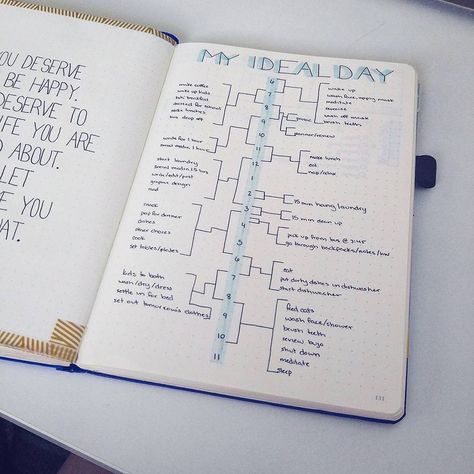 OU DESERVE
BE HAPPY.
DESERVE TO
IFE YOU ARE
D ABOUT.
LET
E YOU
HAT.
MY IDEAL DAY
make coffee
wake up kids
kids' breakfast
dressed for school
make lunches
kids drop off
write for 1 hour
social media 1 hour
start laundry
social media 1.5 hours
write/edit/post
graphic design
read
snack
prep for dinner
dishes
other chores
cook
set tables/plates
kids to bath
wash/dry/dress
settle in for bed
set out tomorrow's clothes
6
7
8
9
10
11
12
1
2
3
4
5
6
7
8
9
10
11
wake up
wash face, apply mask
meditate
exercise
wash off mask
brush teeth
planner/review
make lunch
eat
nap/relax
15 min hang laundry
15 min clean up
pick up from bus @ 3:45
go through backpacks/notes/hw
eat
put dirty dishes in dishwasher
start dishwasher
feed cats
wash face/shower
brush teeth
review bujo
shut down
meditate
sleep
131